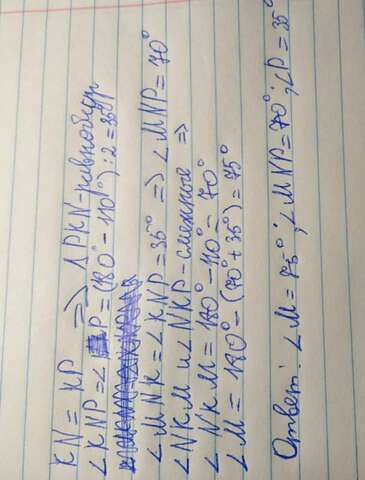 KN = KP => ΔPKN - равнобедр
∠KNP = ∠P = (180° - 110°) : 2 = 35°
∠MNK = ∠KNP = 35° => ∠MNP = 70°
∠NKM и ∠NKP - смежные =>
∠NKM = 180° - 110° = 70°
∠M = 180° - (70° + 35°) = 75°
Ответ: ∠M = 75°; ∠MNP = 70°; ∠P = 35°